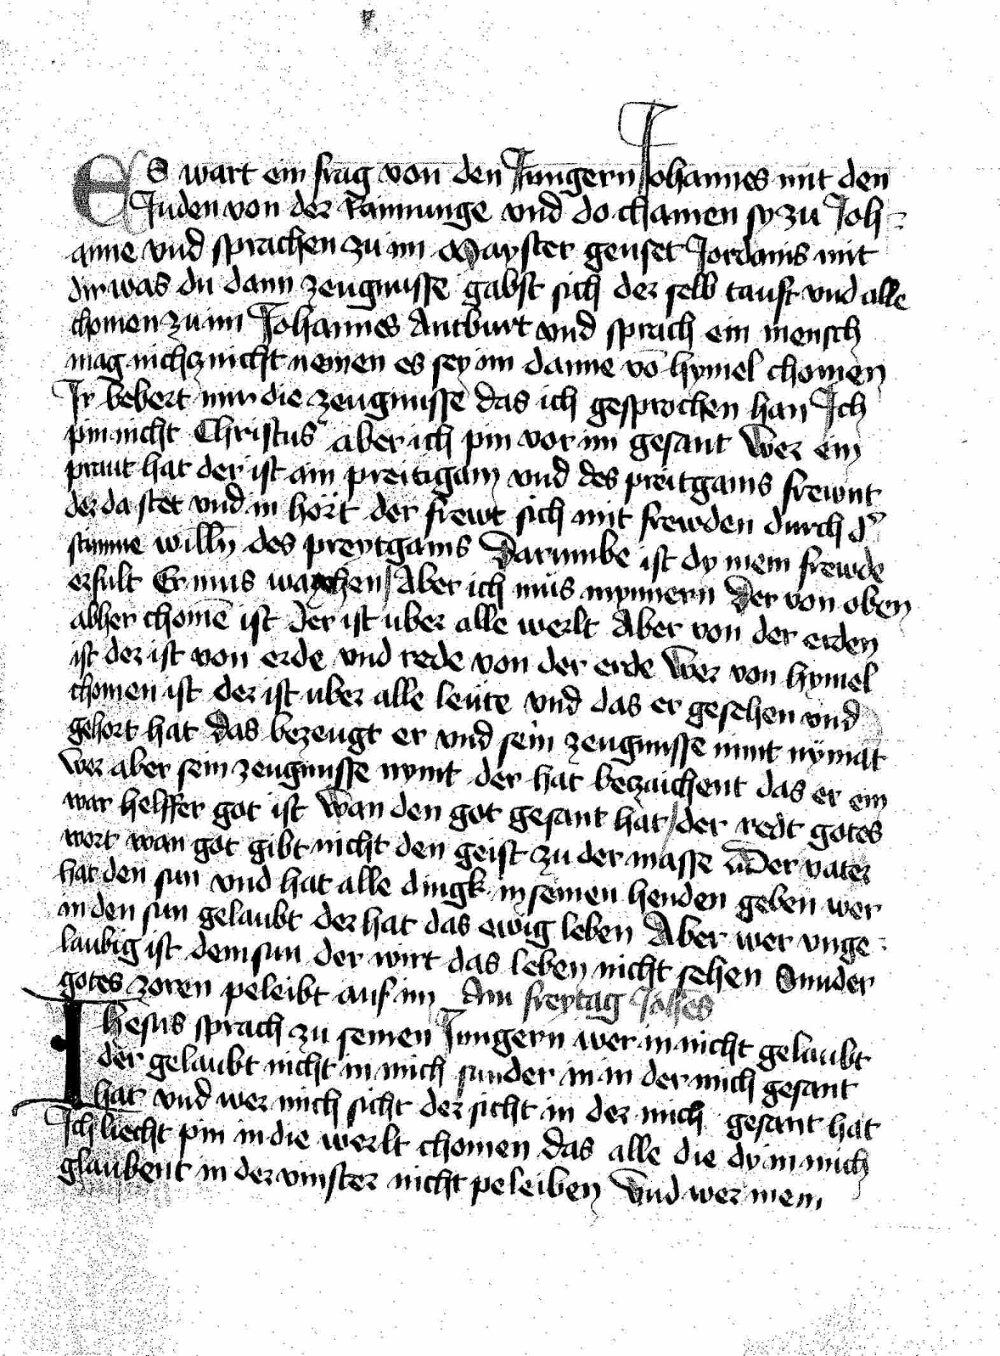 ES wart ein frag von den Jungern Johannes mit den
Juden von der Rainnunge vnd do chamen sy zu Joh-
anne vnd sprachen zu im Mayster genset Jordanis mit
dir was du dann zeugnusse gabst sich der selb tauft vnd alle
chomen zu im Johannes Antburt vnd sprach ein mensch
mag nichcz nicht nemen es sey im danne vō hymel chomen
Ir bebert mir die zeugnusse das ich gesprochen han Ich
pin nicht Christus aber ich pin vor im gesant Wer ein
praut hat der ist ain preitigam vnd des preitgams frewnt
der da stet vnd in hört der frewt sich mit frewden durch d'
stimme willn des preytgams Darumbe ist dy mein frewde
erfult Er mus wachen Aber ich mus mynnern Der von oben
abher chomē ist Der ist uber alle werlt Aber von der erden
ist der ist von erde vnd rede von der erde Wer von hymel
chomen ist der ist uber alle leute vnd das er gesehen vnd
gehort hat Das bezeugt er vnd sein zeugnusse nimt nymāt
Wer aber sein zeugnusse nymt der hat beczaichent das er ein
war helffer got ist Wan den got gesant hat der redt gotes
wort wan got gibt nicht den geist zu der masse Der vater
hat den sun vnd hat alle dingk in seinen henden geben wer
in den sun gelaubt der hat das ewig leben Aber wer vnge-
laubig ist dem sun der wirt das leben nicht sehen Sunder
gotes zoren peleibt auf im Am freytag Johēs
Ihesus sprach zu seinen Jungern wer in nicht gelaubt
der gelaubt nicht in mich sunder in in der mich gesant
hat vnd wer mich sicht der sicht in der mich gesant hat
Ich liecht pin in die werlt chomen das alle die dy in mich
glaubent in der vinster nicht peleiben Vnd wer mein